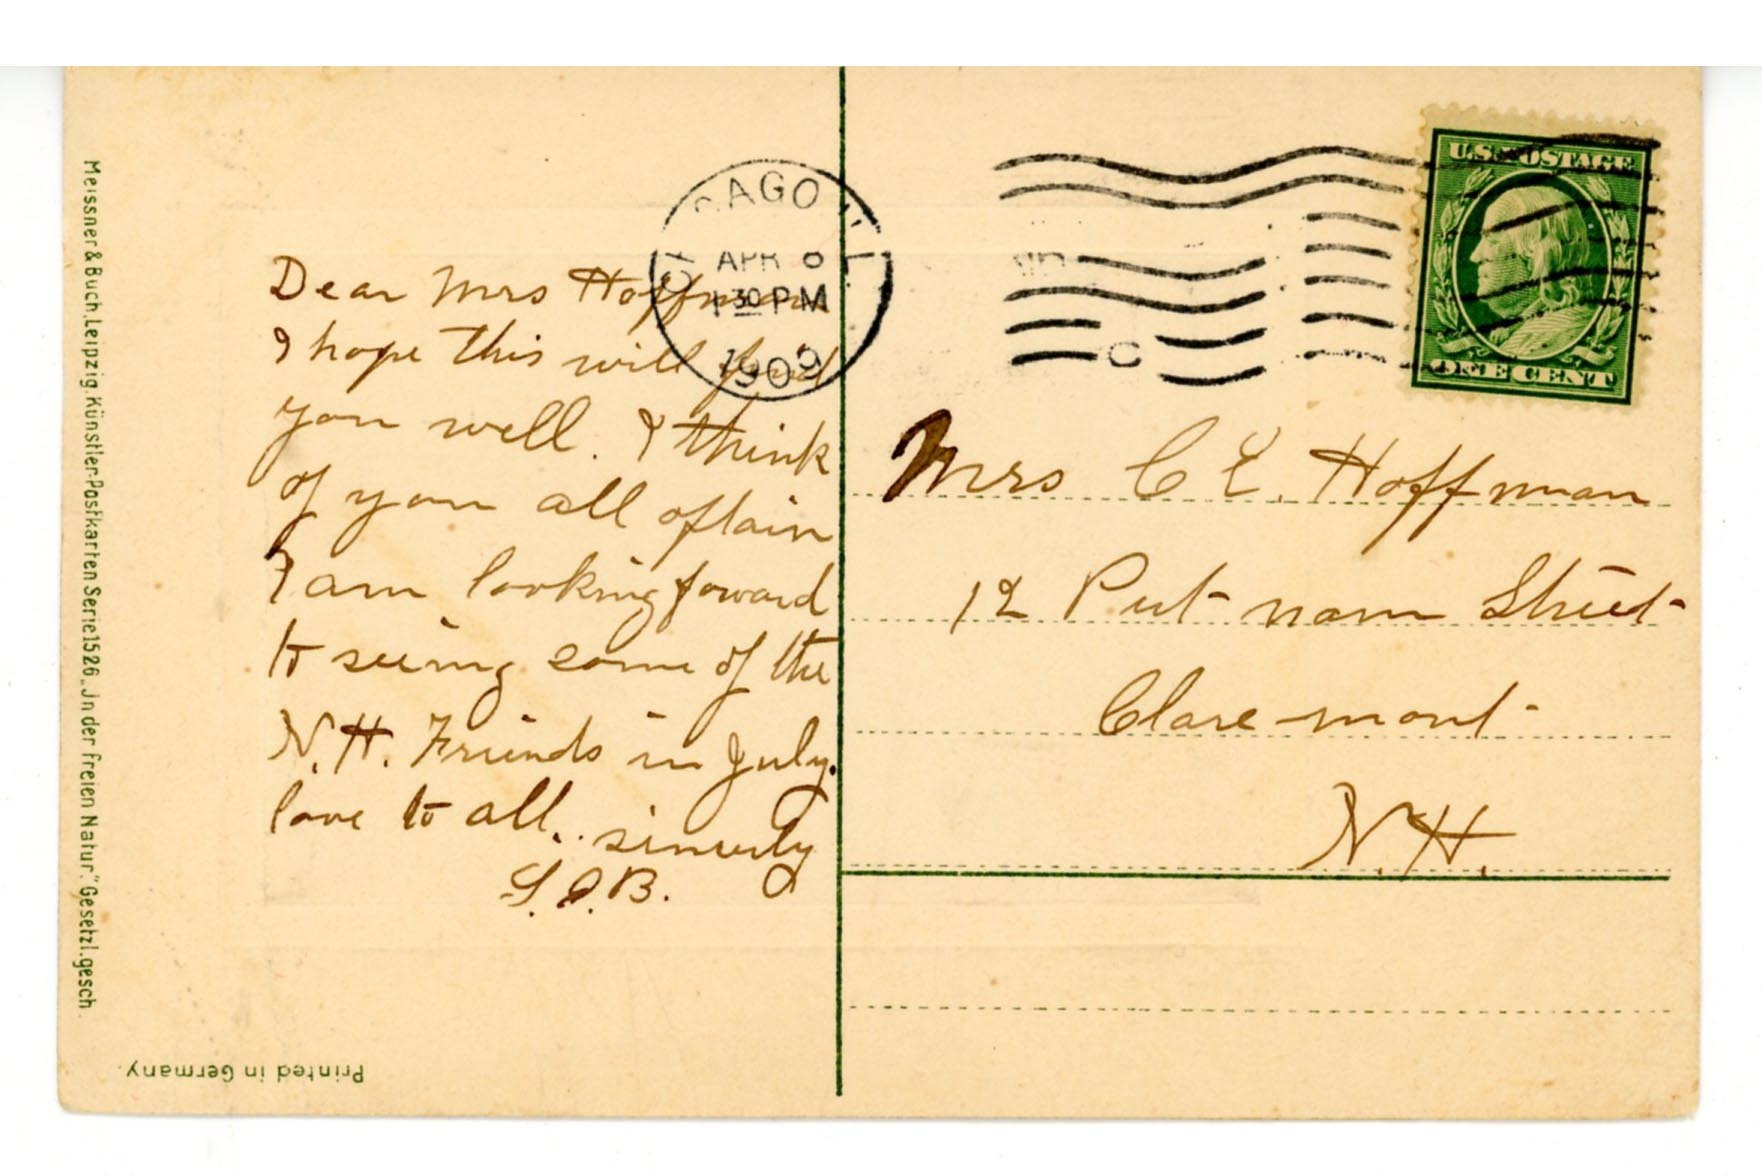 Meissner & Buch, Leipzig. Künstler-Postkarten Serie 1526 „In der freien Natur.“ Gesetzl. gesch.
Printed in Germany
CAGO
APR 6
30 PM
1909
U.S. POSTAGE
ONE CENT
Dear Mrs Hoffman
I hope this will find
you well. I think
of you all oftain
I am looking foward
to seeing some of the
N.H. Friends in July.
love to all.. sincerly
S.O.B.
Mrs C E. Hoffman
12 Put nam Street
Clare-mont-
N.H.